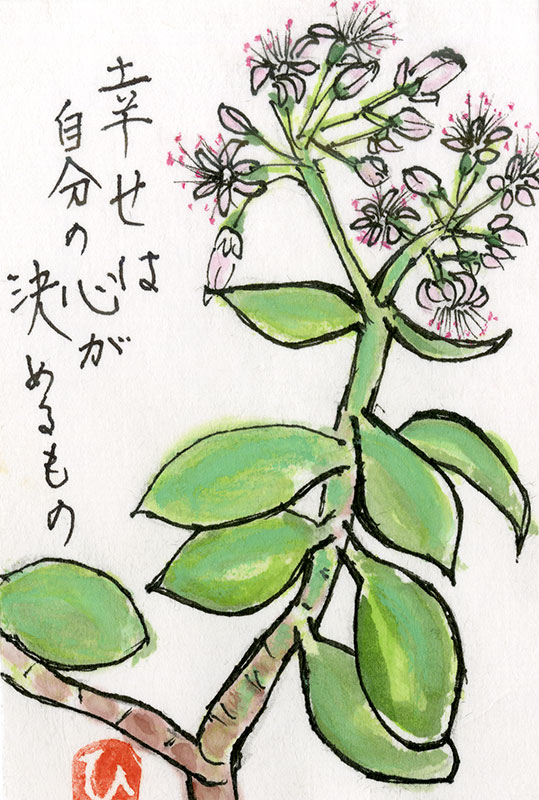 幸せは
自分の心が
決めるもの
ひ